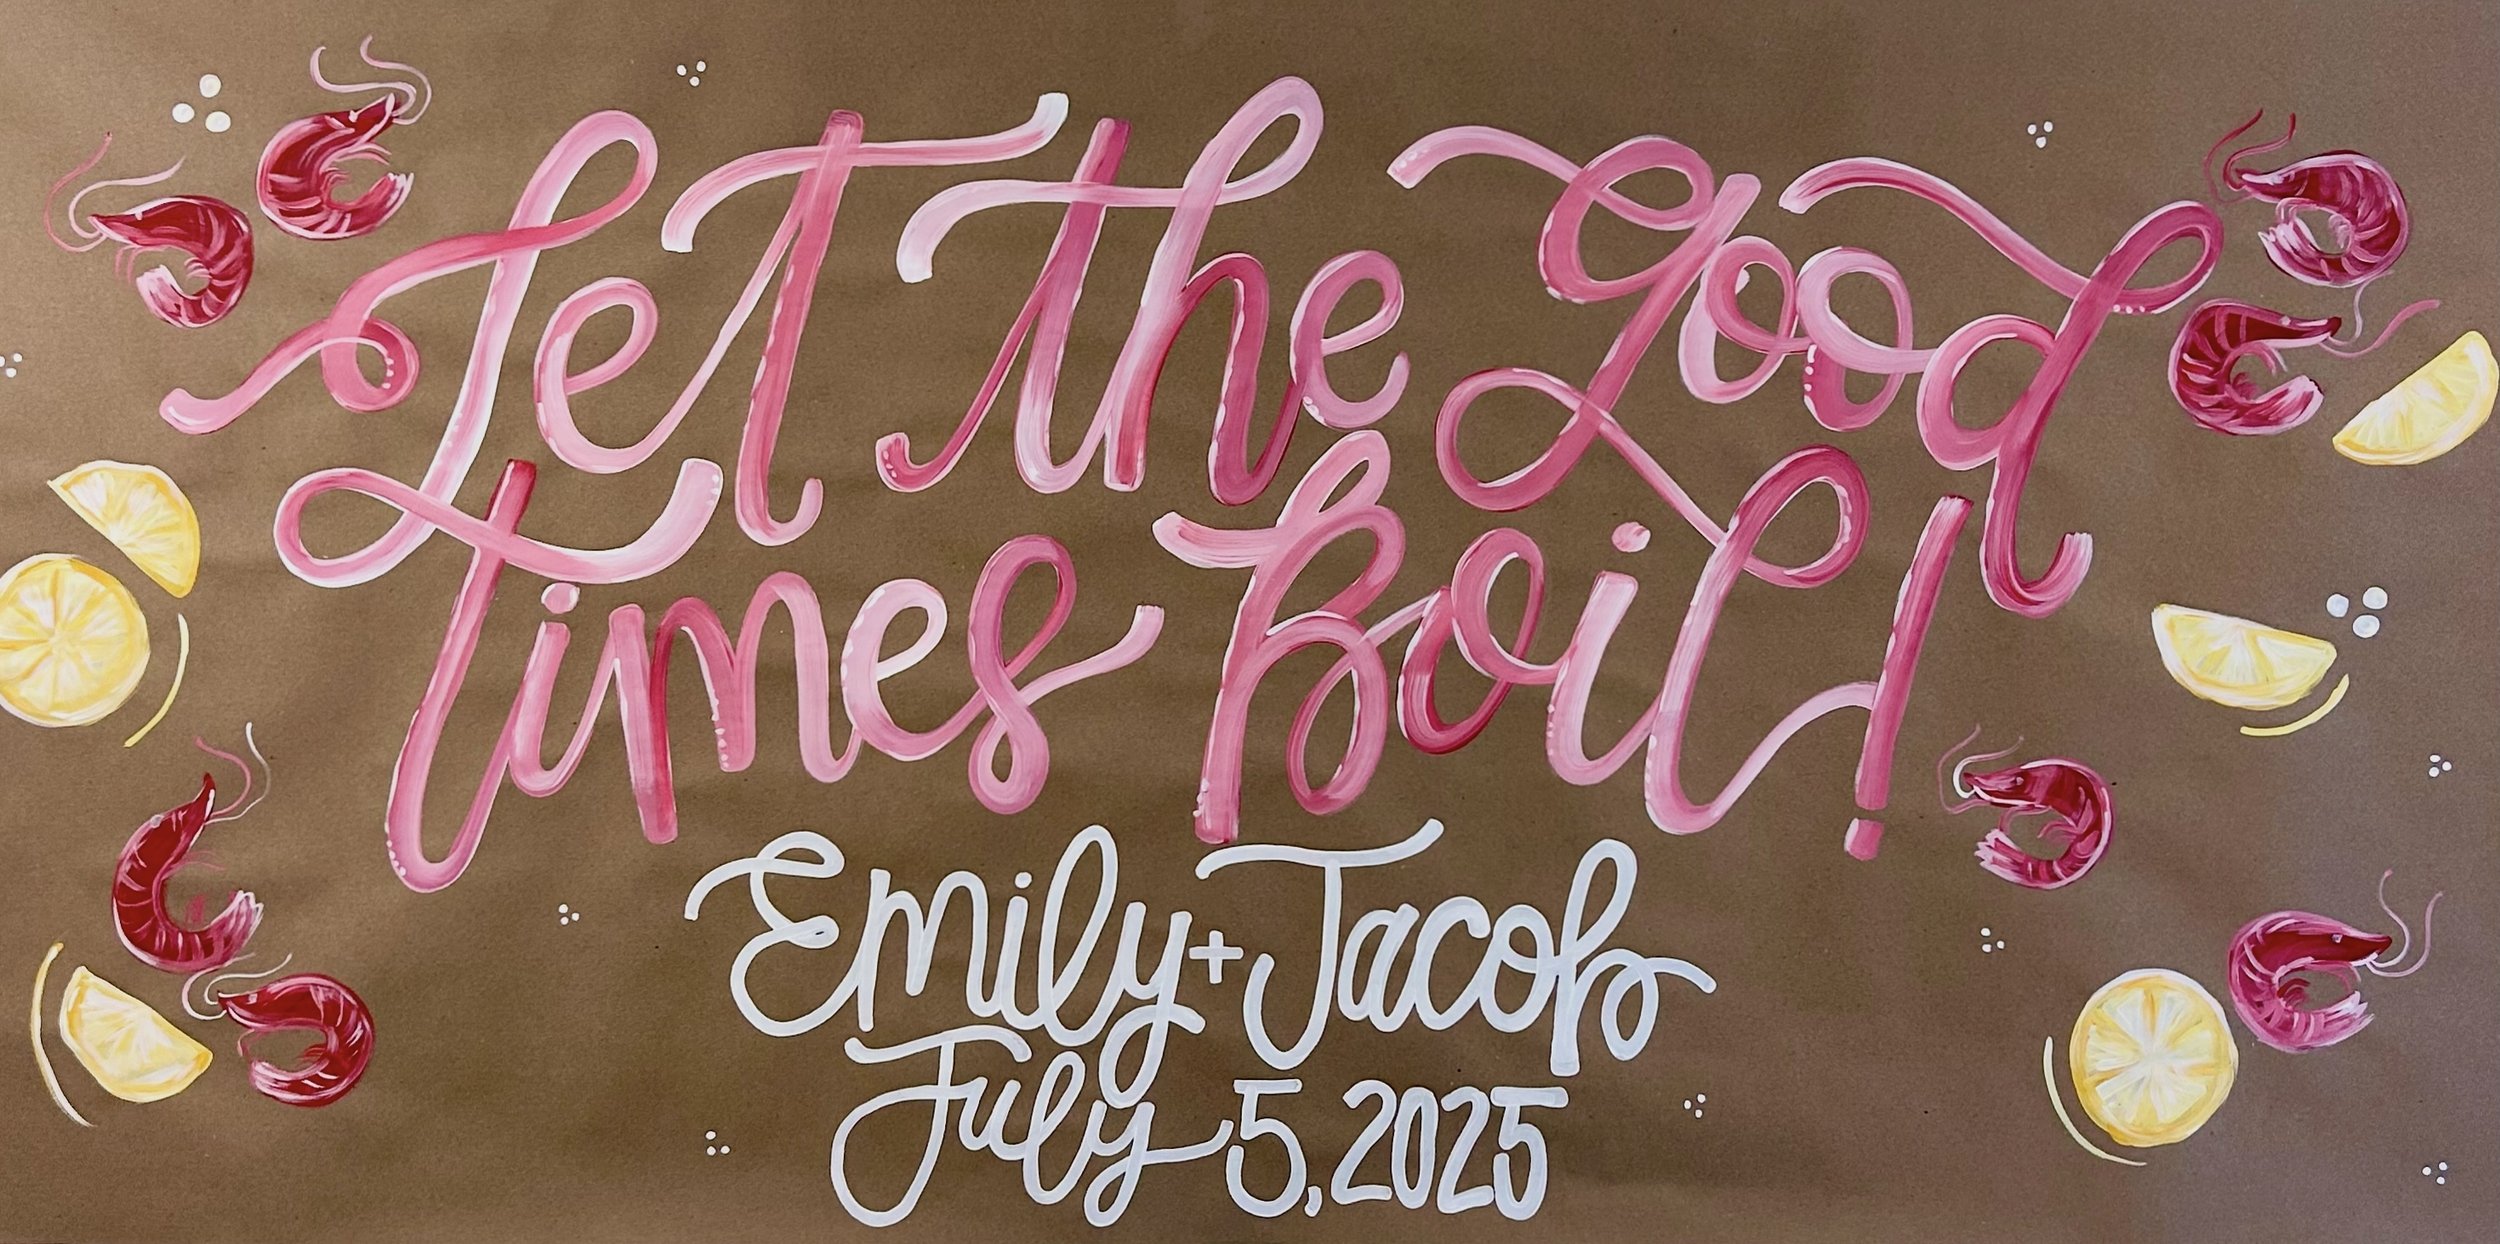 Let the good
times Boil!
Emily + Jacob
July 5, 2025